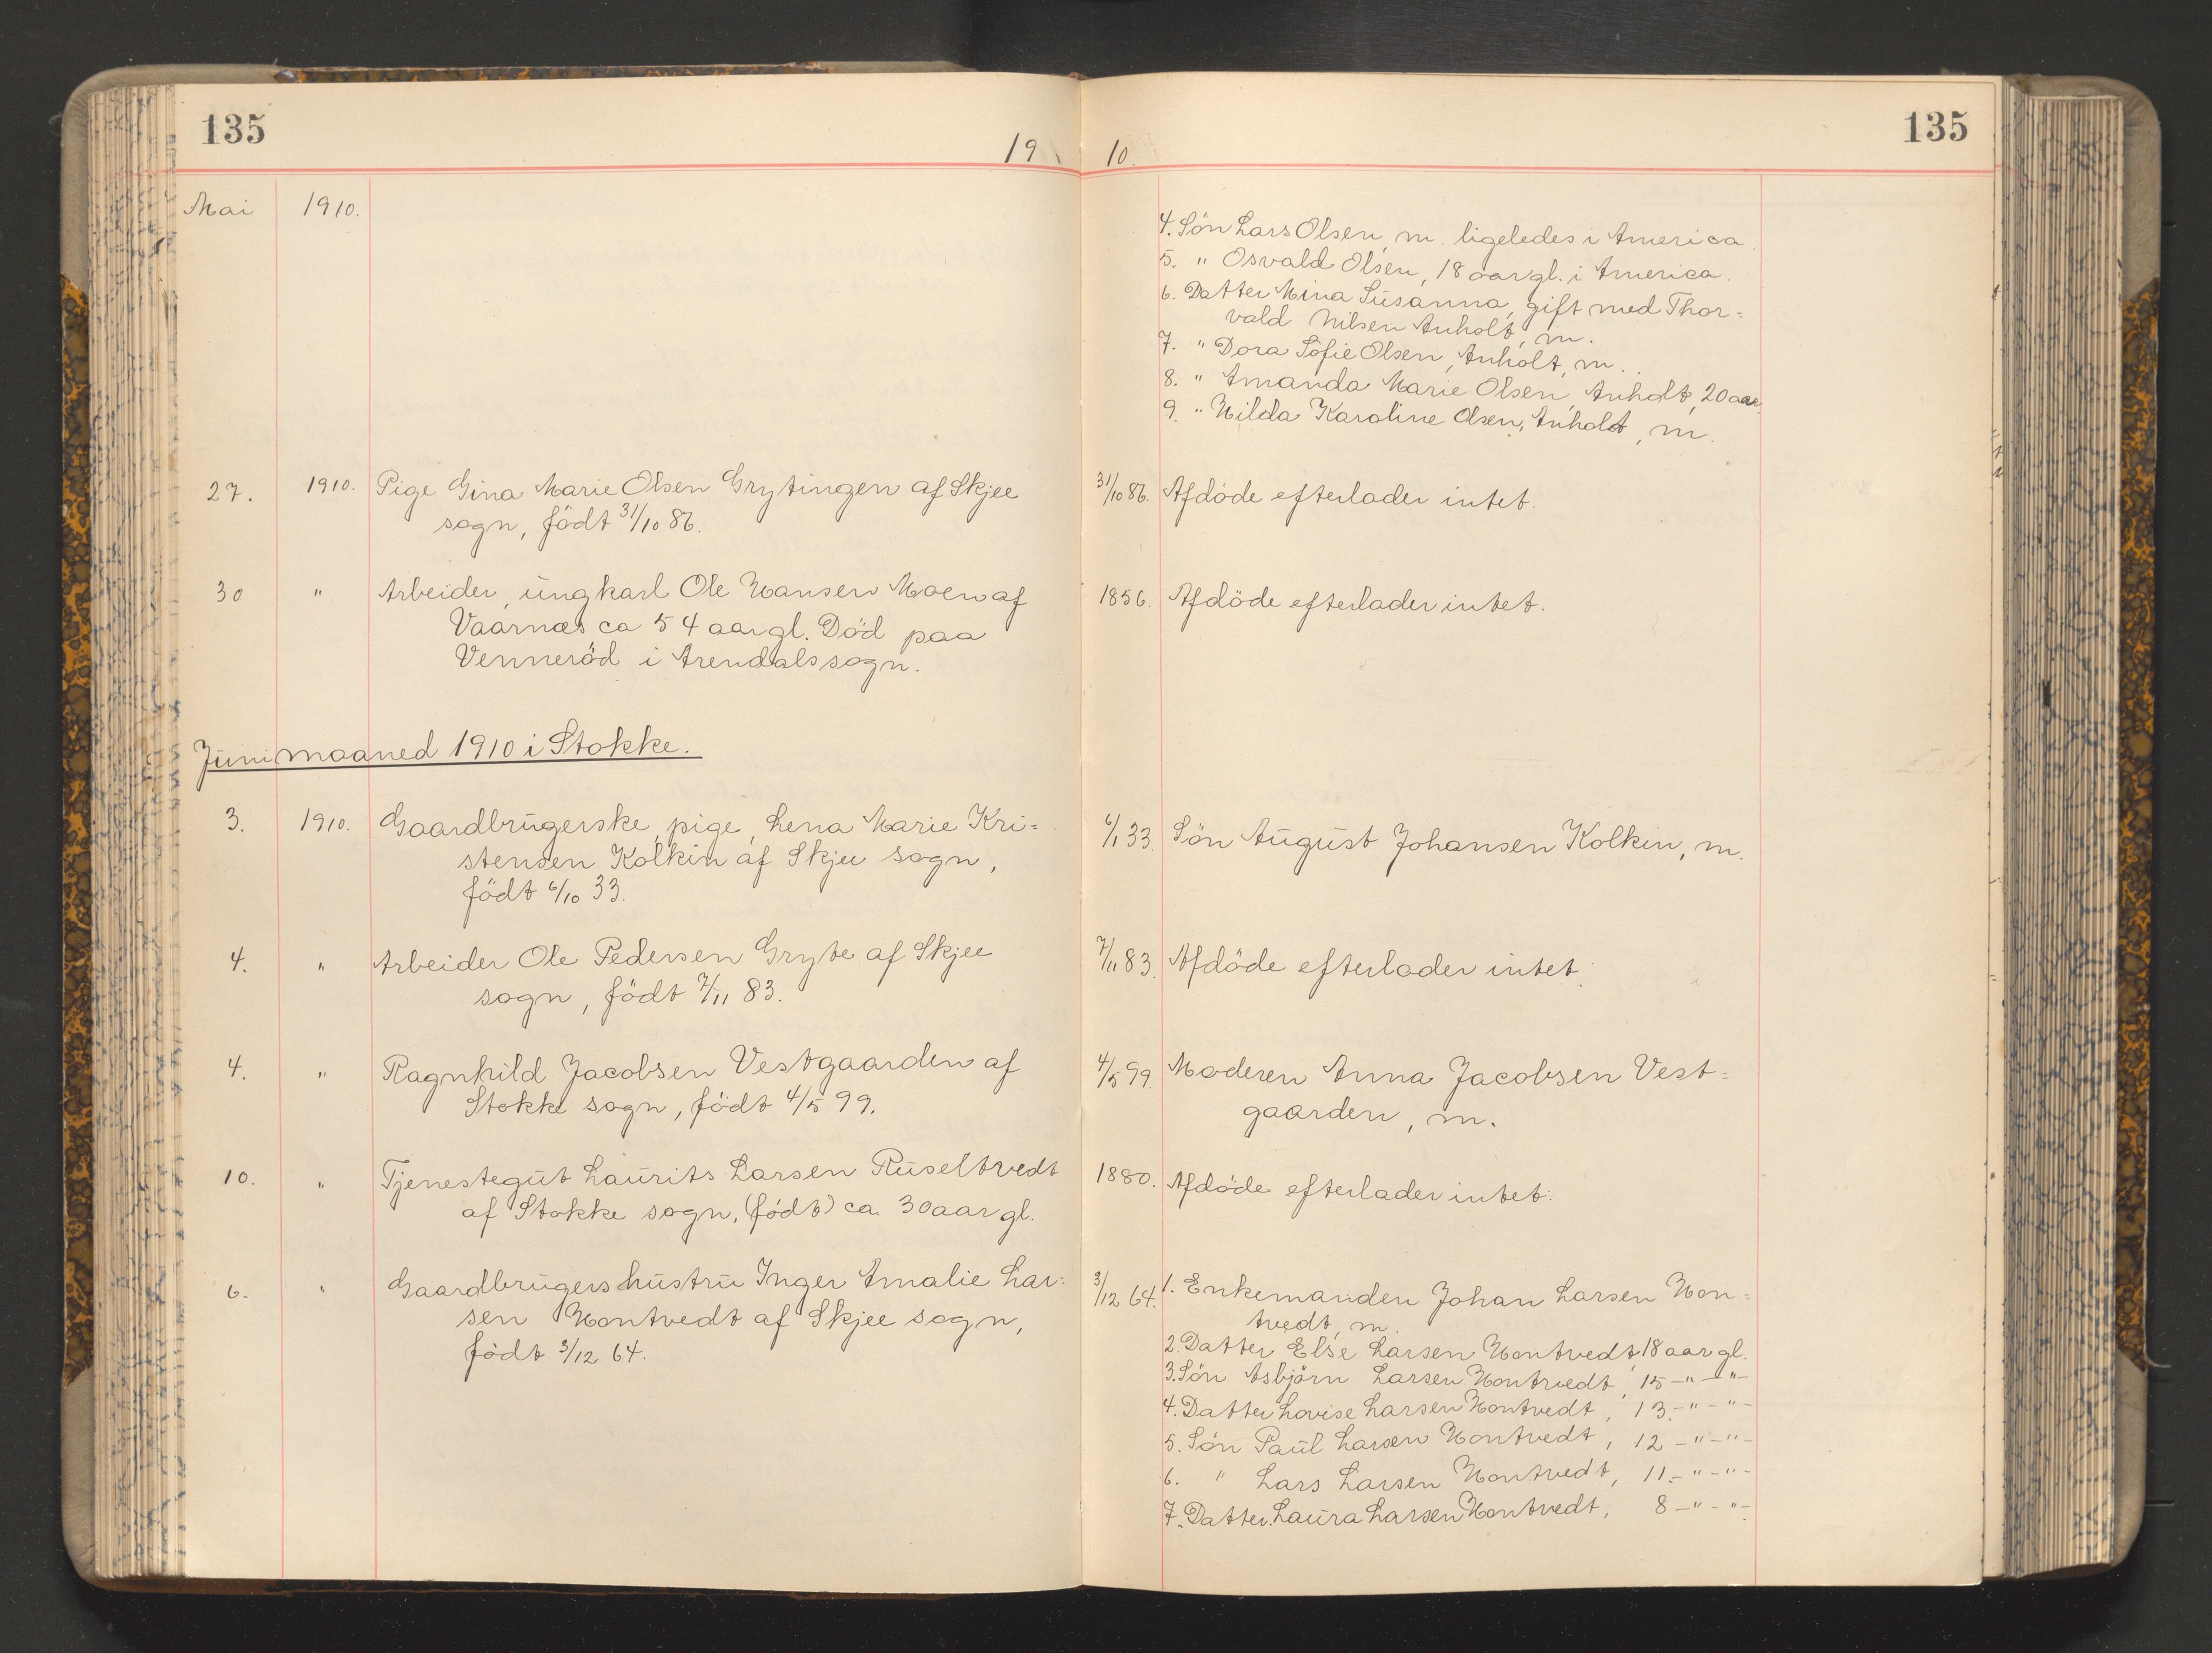 135
19
Mai 1910.
27. 1910. Pige Gina Marie Olsen Grytingen af Skjee
sogn, födt 31/10 86.
30 " Arbeider, ungkarl Ole Hansen Moen af
Vaarnæs ca 54 aar gl. Död paa
Venneröd i Arendals sogn.
Juni maaned 1910 i Stokke.
3. 1910. Gaardbrugerske, pige, Lena Marie Kri=
stensen Kolkin af Skjee sogn,
födt 6/10 33.
4. " Arbeider Ole Pedersen Gryte af Skjee
sogn, födt 7/11 83.
4. " Ragnhild Jacobsen Vestgaarden af
Stokke sogn, födt 4/5 99.
10. " Tjenestegut Laurits Larsen Ruseltvedt
af Stokke sogn, (födt) ca. 30 aar gl.
6. " Gaardbrugers hustru Inger Amalie Lar=
sen Hontvedt af Skjee sogn,
födt 3/12 64.
135
10.
4. Sön Lars Olsen, m. ligeledes i America.
5. " Osvald Olsen, 18 aar gl. i America.
6. Datter Mina Susanna, gift med Thor=
vald Nilsen Anholt, m.
7. " Dora Sofie Olsen, Anholt, m.
8. " Amanda Marie Olsen, Anholt, 20 aar.
9. " Hilda Karoline Olsen, Anholt, m.
31/10 86. Afdöde efterlader intet.
1856. Afdöde efterlader intet.
6/1 33. Sön August Johansen Kolkin, m.
7/11 83. Afdöde efterlader intet.
4/5 99. Moderen Anna Jacobsen Vest=
gaarden, m.
1880. Afdöde efterlader intet.
3/12 64. 1. Enkemanden Johan Larsen Hon=
tvedt, m.
2. Datter Else Larsen Hontvedt, 18 aar gl.
3. Sön Asbjörn Larsen Hontvedt, 15 -"-"-
4. Datter Lovise Larsen Hontvedt, 13.-"-"-
5. Sön Paul Larsen Hontvedt, 12 -"-"-
6. " Lars Larsen Hontvedt, 11.-"-"-
7. Datter Laura Larsen Hontvedt, 8 -"-"-